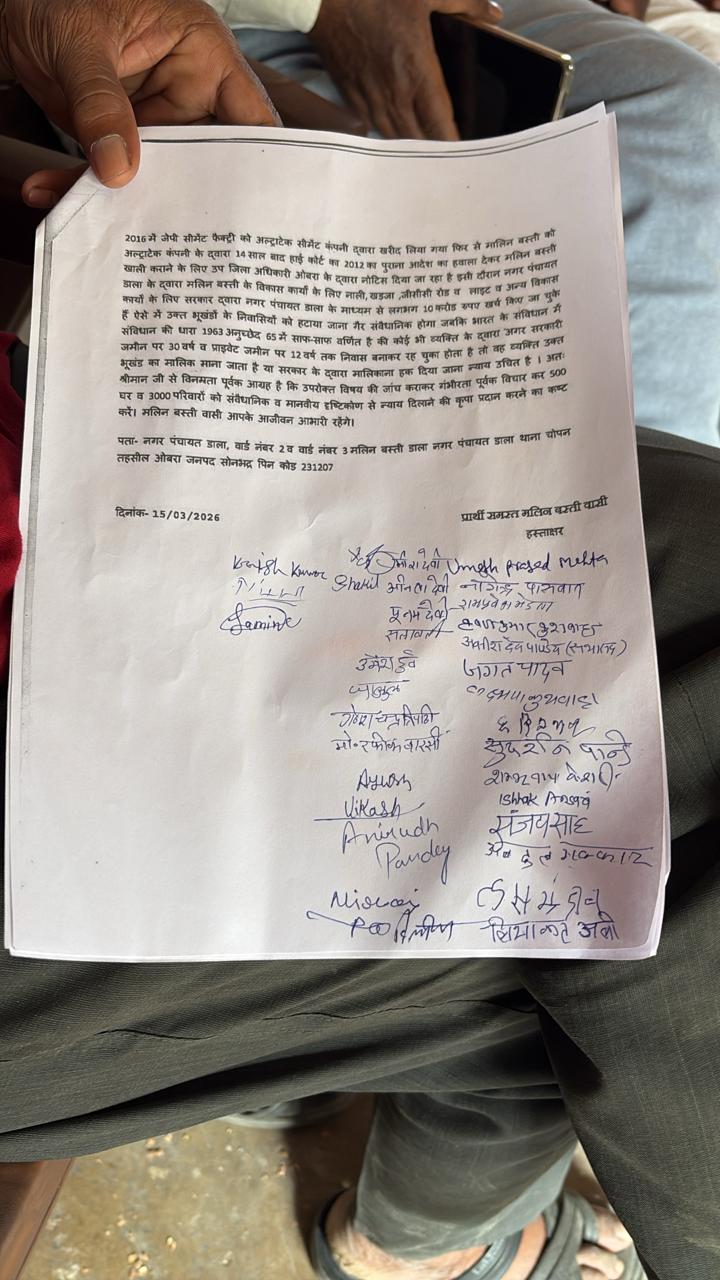 2016 में जेपी सीमेंट फैक्ट्री को अल्ट्राटेक सीमेंट कंपनी द्वारा खरीद लिया गया फिर से मालिन बस्ती को
अल्ट्राटेक कंपनी के द्वारा 14 साल बाद हाई कोर्ट का 2012 का पुराना आदेश का हवाला देकर मलिन बस्ती
खाली कराने के लिए उप जिला अधिकारी ओबरा के द्वारा नोटिस दिया जा रहा है इसी दौरान नगर पंचायत
डाला के द्वारा मलिन बस्ती के विकास कार्यों के लिए नाली, खड़ंजा ,सीसी रोड व लाइट व अन्य विकास
कार्यों के लिए सरकार द्वारा नगर पंचायत डाला के माध्यम से लगभग 10 करोड रुपए खर्च किए जा चुके
हैं ऐसे में उक्त भूखंडों के निवासियों को हटाया जाना गैर संवैधानिक होगा जबकि भारत के संविधान में
संविधान की धारा 1963 अनुच्छेद 65 में साफ-साफ वर्णित है की कोई भी व्यक्ति के द्वारा अगर सरकारी
जमीन पर 30 वर्ष व प्राइवेट जमीन पर 12 वर्ष तक निवास बनाकर रह चुका होता है तो वह व्यक्ति उक्त
भूखंड का मालिक माना जाता है या सरकार के द्वारा मालिकाना हक दिया जाना न्याय उचित है । अतः
श्रीमान जी से विनम्रता पूर्वक आग्रह है कि उपरोक्त विषय की जांच कराकर गंभीरता पूर्वक विचार कर 500
घर व 3000 परिवारों को संवैधानिक व मानवीय दृष्टिकोण से न्याय दिलाने की कृपा प्रदान करने का कष्ट
करें। मलिन बस्ती वासी आपके आजीवन आभारी रहेंगे।
पता- नगर पंचायत डाला, वार्ड नंबर 2 व वार्ड नंबर 3 मलिन बस्ती डाला नगर पंचायत डाला थाना चोपन
तहसील ओबरा जनपद सोनभद्र पिन कोड 231207
दिनांक- 15/03/2026 प्रार्थी समस्त मलिन बस्ती वासी
हस्ताक्षर
Kumar Umesh Prasad Mehta
Shakil देवी नागेन्द्र पासवान
पूनम देवी
उमेश दुबे जगत यादव
Ayush
Vikash Ishtak Ansari
Anirudh संजय साह
Pandey
अली